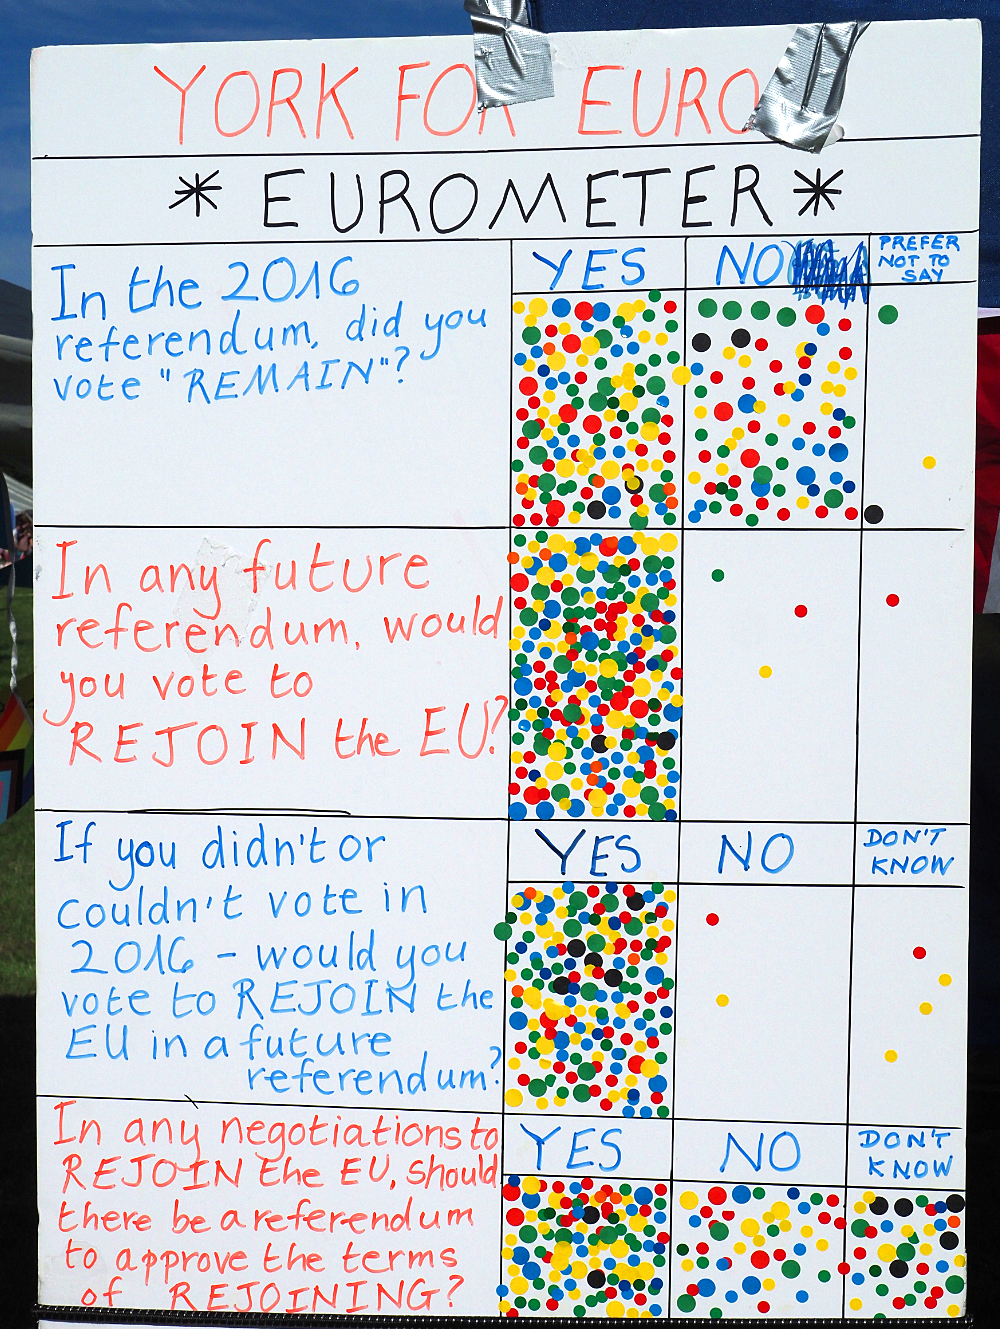 YORK FOR EURO
* EUROMETER *
In the 2016
referendum, did you
vote "REMAIN"?
YES
NO
PREFER
NOT TO
SAY
In any future
referendum, would
you vote to
REJOIN the EU?
If you didn't or
couldn't vote in
2016 - would you
vote to REJOIN the
EU in a future
referendum?
YES
NO
DON'T
KNOW
In any negotiations to
REJOIN the EU, should
there be a referendum
to approve the terms
of REJOINING?
YES
NO
DON'T
KNOW